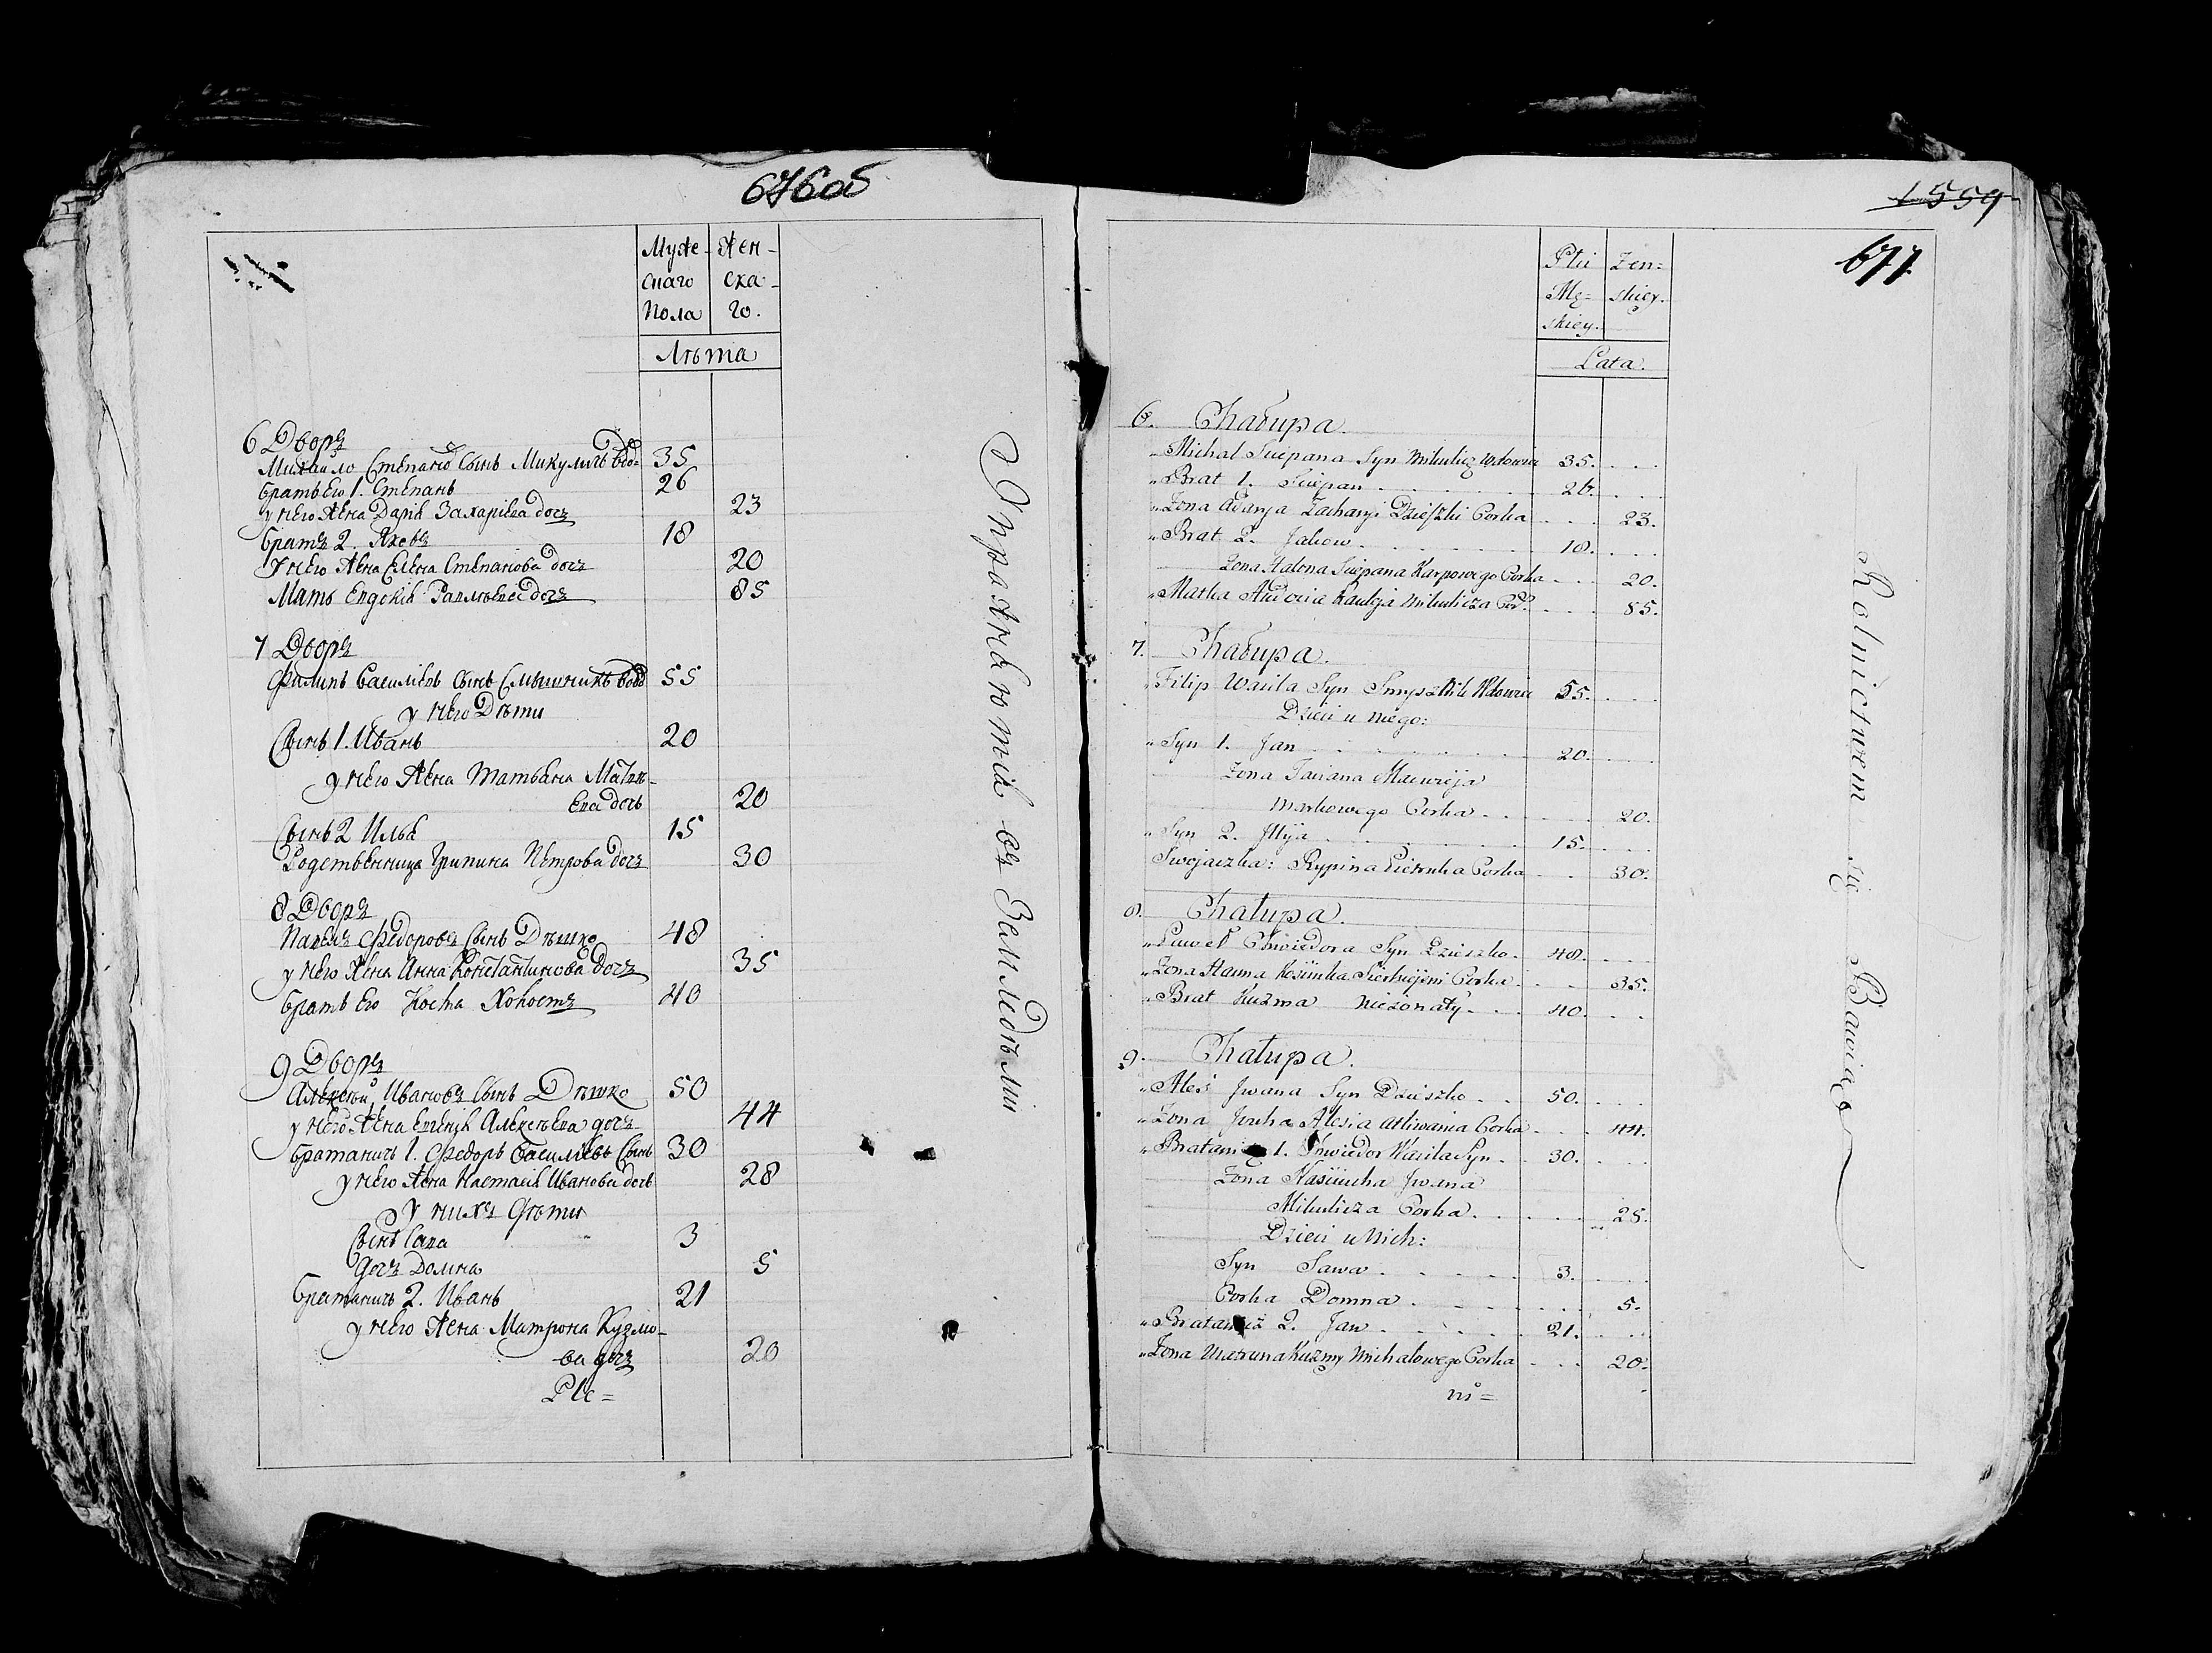 676об
Муже- Жен-
скаго ска-
Пола го.
Лѣта
6 Дворъ
Михайло Степановъ Сынъ Микуличъ вдо= 35
братъ Его 1. Степанъ 26
у Него Жена Дарія Захаріева дочъ 23
братъ 2. Яковъ 18
У Него Жена Елена Степанова дочъ 20
Мать Евдокія дочъ 85
7 Дворъ
Филипъ Василіевъ Сынъ вдов 55
у Него Дѣти
Сынъ 1. Иванъ 20
у Него Жена Татьяна Матвѣ-
ева дочь 20
Сынъ 2 Илья 15
Родственница Грипина Петрова дочъ 30
8 Дворъ
Павелъ Федоровъ Сынъ Дѣшко 48
у Него Жена Анна Константинова дочъ 35
братъ Его Косма Холостъ 40
9 Дворъ
Алексѣй Ивановъ Сынъ Дѣшко 50
у Него Жена Евгенія Алексѣева дочъ 44
братаничъ 1. Федоръ Василіевъ Сынъ 30
у Него Жена Настасія Иванова дочь 28
У нихъ Дѣти
Сынъ Сава 3
дочъ Домна 5
братаничъ 2. Иванъ 21
у Него Жена Матрона Кузмо-
ва дочъ 20
Ple=
Упражняются въ Земледѣліи
1559
677
Płci Żen=
Mę= skiey.
skiey.
Lata.
6. Chałupa.
„Michał Sciepana Syn Mikulicz Wdowiec 35.
„Brat 1. Sciepan 26.
„Zona Adarja Zacharyi Dzieszki Corka 23.
„Brat 2. Jakow 18.
Zona Halona Sciepana Karpowego Corka 20.
„Matka Audocia Mikulicza Cor. 85.
7. Chałupa.
Filip Wasila Syn Wdowiec 55.
Dzieci u Niego:
„Syn 1. Jan 20.
Zona Taciana Maciwieja
Markowego Corka 20.
„Syn 2. Illja 15.
Swojaczka: Rypina Corka 30.
8. Chałupa.
„Paweł Chwiedora Syn Dzieszko 48.
„Zona Hanna Corka 35.
„Brat Kuzma Niezonaty 40.
9. Chałupa.
„Aleś Jwana Syn Dzieszko 50.
„Zona Jouha Alesia Corka 44.
„Bratanicz 1. Chwiedor Wasila Syn 30.
Zona Nasciucha Jwana
Mikulicza Corka 28.
Dzieci u Nich:
Syn Sawa 3.
Corka Domna 5.
„Bratanicz 2. Jan 21.
„Zona Matruna Kuzmy Michałowego Corka 20.
ni=
Rolnictwem się Bawią